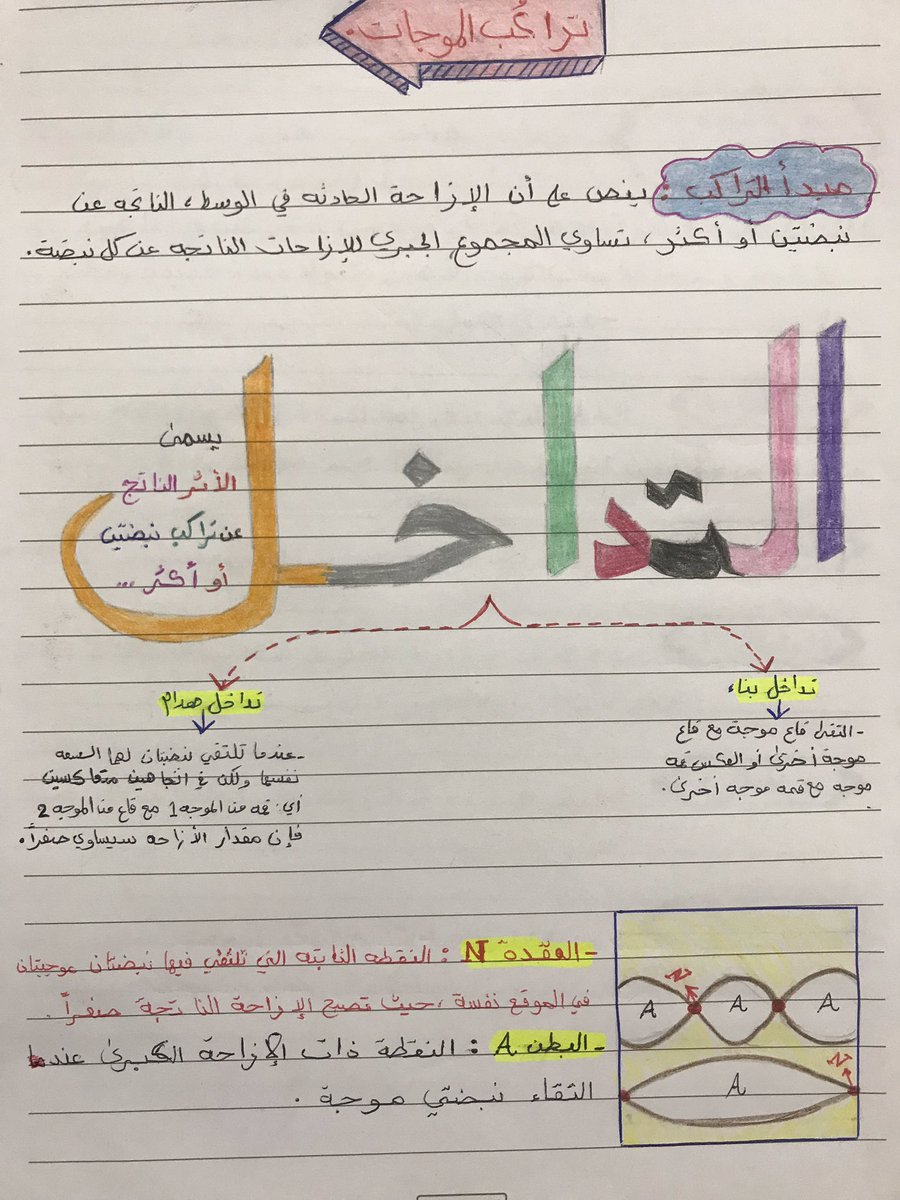 تراكُب الموجات.
مبدأ التراكب : ينص على أن الإزاحة الحادثه في الوسط، الناتجه عن
نبضتين أو أكثر، تساوي المجموع الجبري للإزاحات الناتجه عن كل نبضة.
التداخل
يسمى
الأثر الناتج
عن تراكب نبضتين
أو أكثر ...
تداخل بناء
- التقاء قاع موجة مع قاع
موجة أخرى أو العكس قمه
موجه مع قمه موجه أخرى.
تداخل هدام
- عندما تلتقي نبضتان لها السعه
نفسها ولكن في اتجاهين متعاكسين
أي: قمه من الموجه 1 مع قاع من الموجه 2
فإن مقدار الأزاحه سيساوي صفراً.
- العقدة N : النقطه الثابته التي تلتقي فيها نبضتان موجيتان
في الموقع نفسة ، حيث تصبح الإزاحة الناتجة صفراً .
- البطن A : النقطة ذات الإزاحة الكبرى عندما
التقاء نبضتي موجة .
N
A A A
N
A